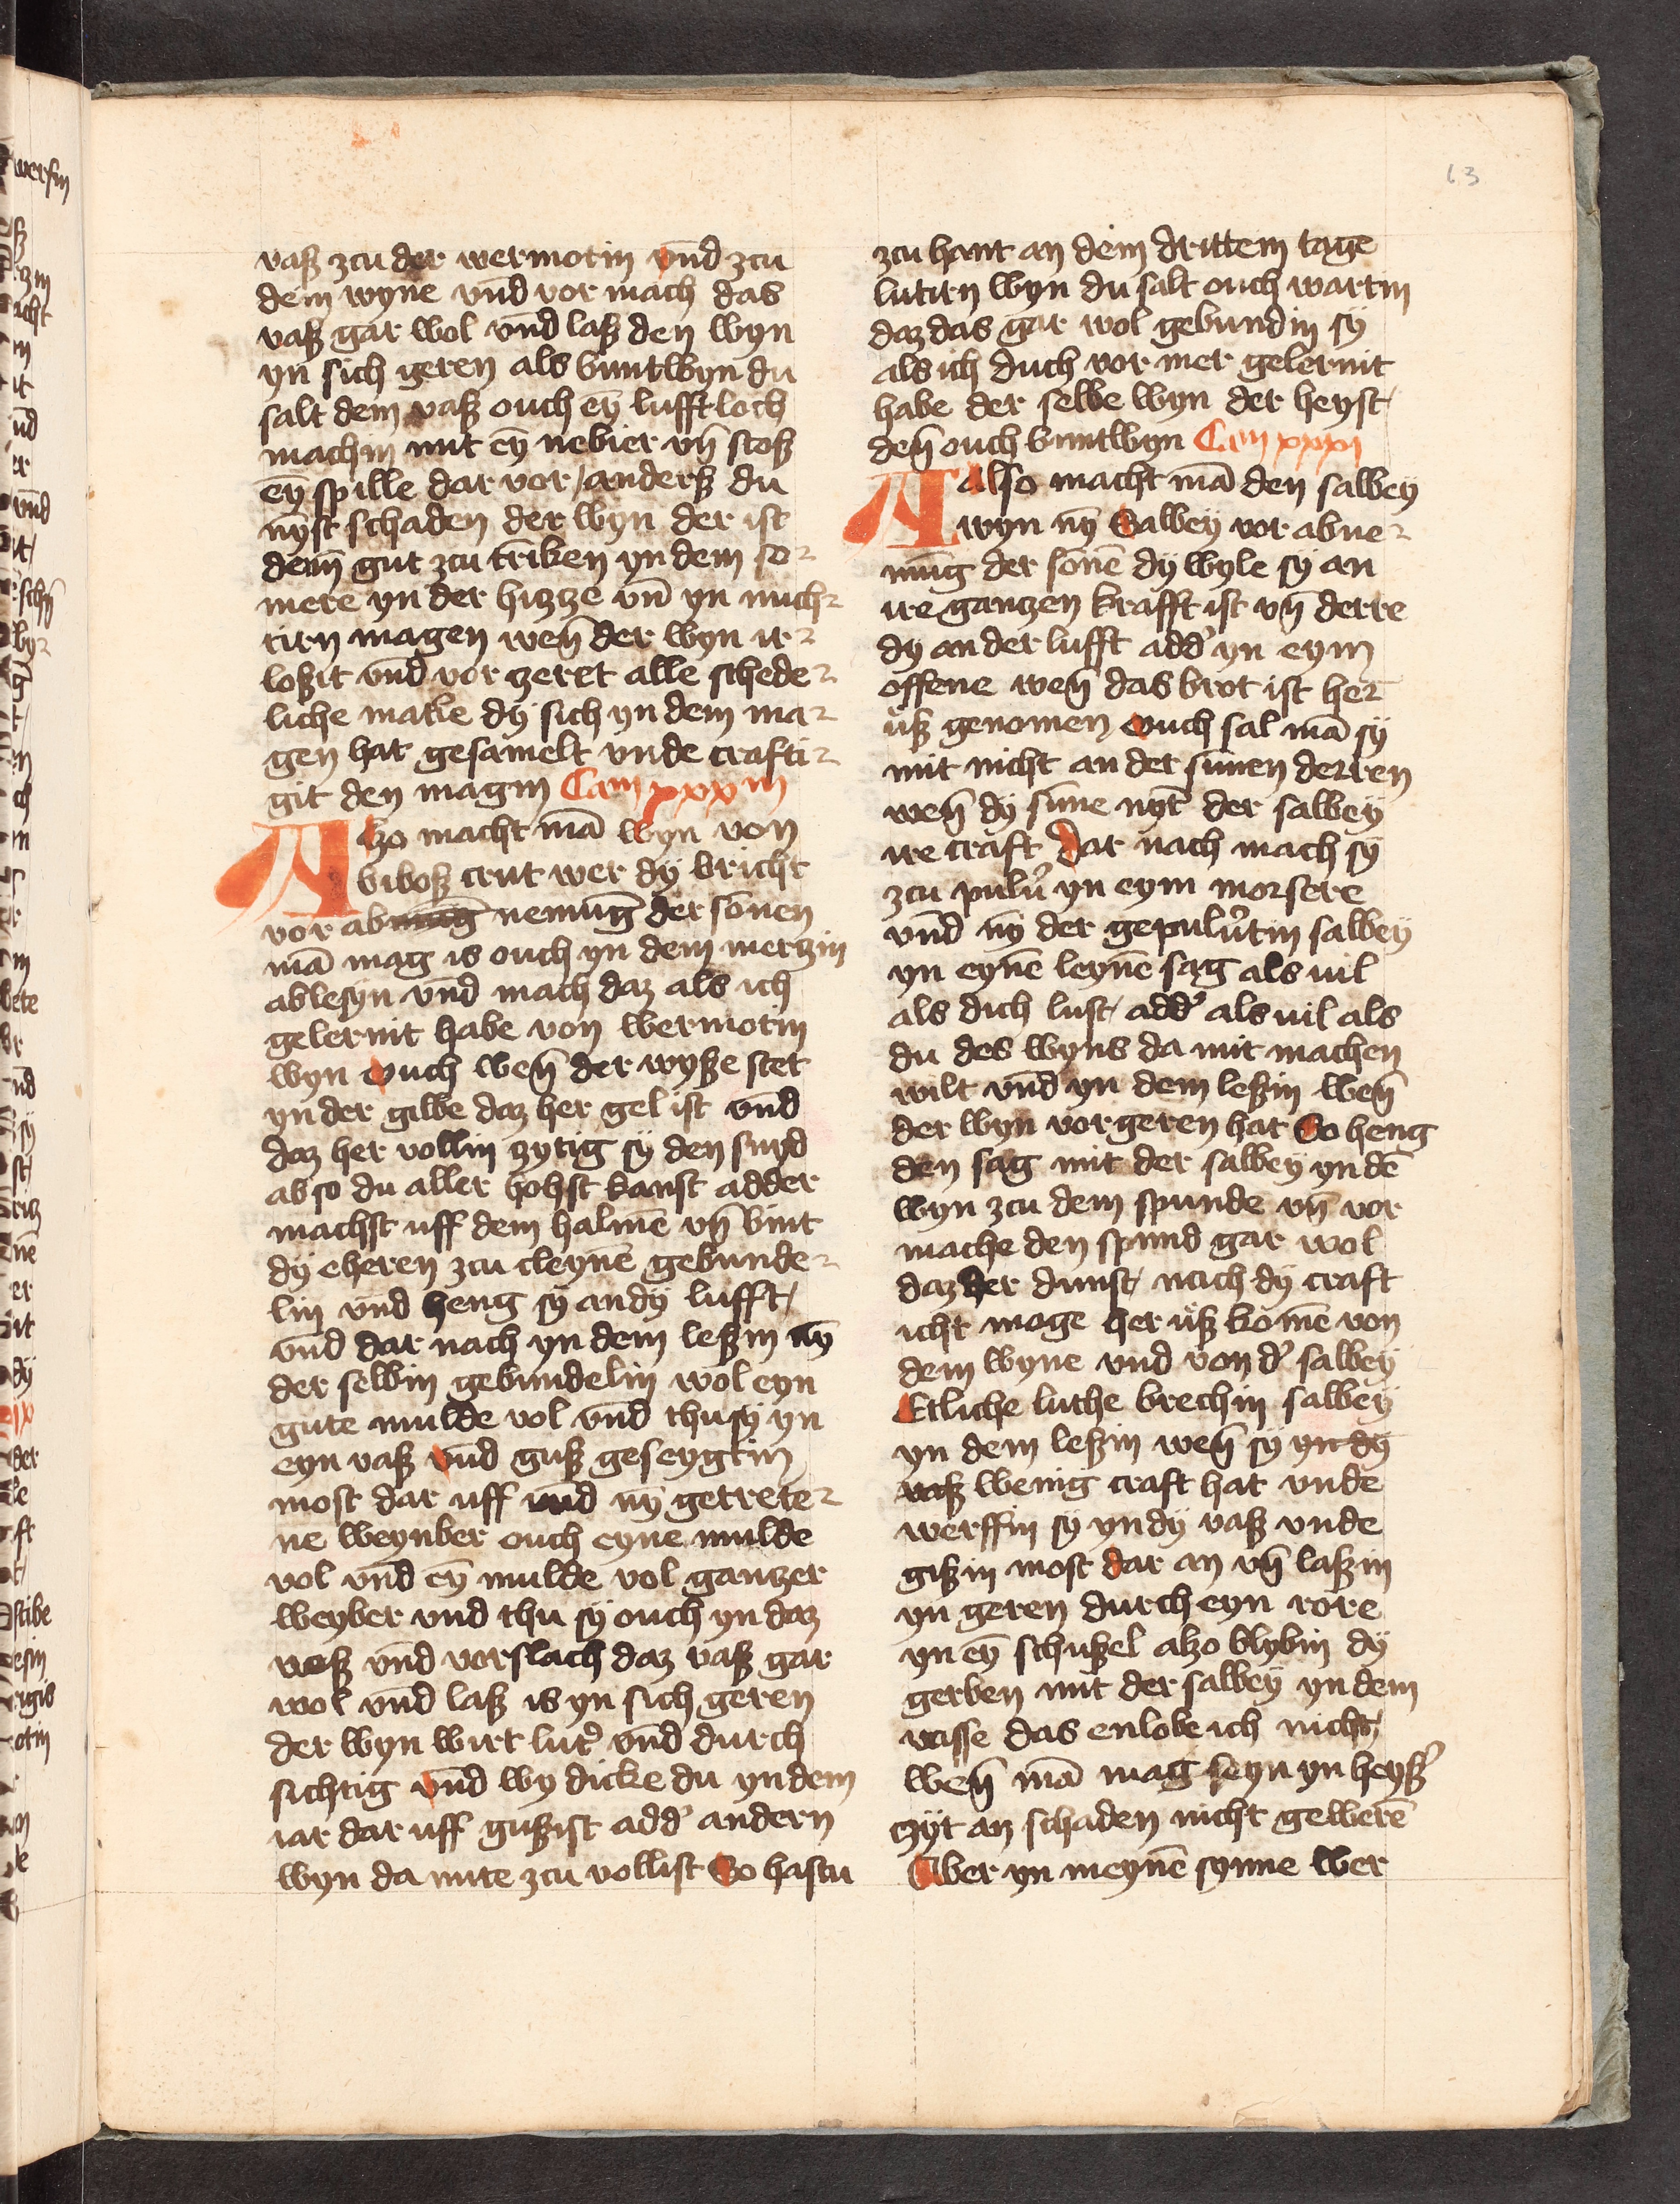 63
vasz zcu der wermotin vnd zcu
dem wyne vnd vor mach das
vasz gar wol vnd lasz den wyn
yn sich geren als buntwyn du
salt dem vasz ouch eȳ lufftloch
machin mit eȳ nebier vn̄ stosz
eȳ spille dar vor / andersz du
nyst schaden der wyn der ist
denn̄ gut zcu trīken yn dem so⸗
mere yn der hizze vn̄ yn nuch⸗
tirn magen wen̄ der wyn ir⸗
loszit vnd vor czeret alle schede⸗
liche makle dÿ sich yn dem ma⸗
gen hat gesamelt vnde crafti⸗
git den magin Cam xxx m
Also macht mā wyn von
bibosz crut wer dÿ bricht
vor abnūg nemūg der sonnen
mā mag is ouch yn dem merczin
ablesyn vnd mach daz als ich
gelernit habe von wermotin
wyn ouch wen̄ der weysze stet
yn der gilbe daz her gel ist vnd
daz her vollin czytig sÿ den snyd
ab so du aller hohst kanst adder
machst uff dem halmē vn̄ bint
dÿ eheren zcu cleynē gebunde⸗
lin vnd heng sÿ an dÿ lufft /
vnd dar nach yn dem leszin nȳ
der selbin gebundelin wol eyn
gute mulde vol vnd thu sÿ yn
eyn vasz vnd gusz geseygtin
most dar uff vnd nȳ getrete⸗
ne weynber ouch eyne mulde
vol vnd eȳ mulde vol gantzer
weyber vnd thu sÿ ouch yn daz
vasz vnd vorslach daz vasz gar
wol vnd lasz is yn sich geren
der wyn wirt lut' vnd durch
sichtig vnd wy dicke du yn dem
iar dar uff guszist add' andern
wyn da mite zcu vollist So hastu
zcu hant an dem drittem tage
lutirn wyn du salt ouch wartin
daz das gar wol gebundin sÿ
als ich duch vor mer gelernit
habe der selbe wyn der heyst /
den̄ ouch buntwyn Cam xxxi
Also macht mā den salbey
wyn nȳ Salbey vor abne⸗
mūg der sonē dÿ wyle sÿ an
ire gantzen krafft ist vn̄ derre
dÿ an der lufft add' yn eym
offene wen̄ das brot ist her
usz genomen ouch sal mā sÿ
mit nicht an der sunen derren
wen̄ dÿ sunne nyt der salbey
ire craft dar nach mach sÿ
zcu pulu' yn eym morsere
vnd nȳ der gepulu'tin salbey
yn eynē leynē sag als uil
als dich lust / add' als uil als
du des wyns da mit machen
wilt vnd yn dem leszin wen̄
der wyn vorgeren hat So heng
den sag mit der salbey yn dē
wyn zcu dem spunde vn̄ vor
mache den spund gar wol
daz der dunst / nach dÿ craft
icht moge her usz komē von
dem wyne vnd von d' salbey
Etliche luthe brechin salbey
yn dem leszin wen̄ sÿ yn dÿ
vasz wenig craft hat vnde
werffin sÿ yn dÿ vasz vnde
giszin most dar an vn̄ laszin
yn geren durch eyn rore
yn eȳ schuszel also blybin dÿ
gerben mit der salbey yn dem
vasse das enlobe ich nicht /
wen̄ mā mag seyn yn heysz'
czÿt an schaden nicht gewerē
Aber yn meynē synne wer